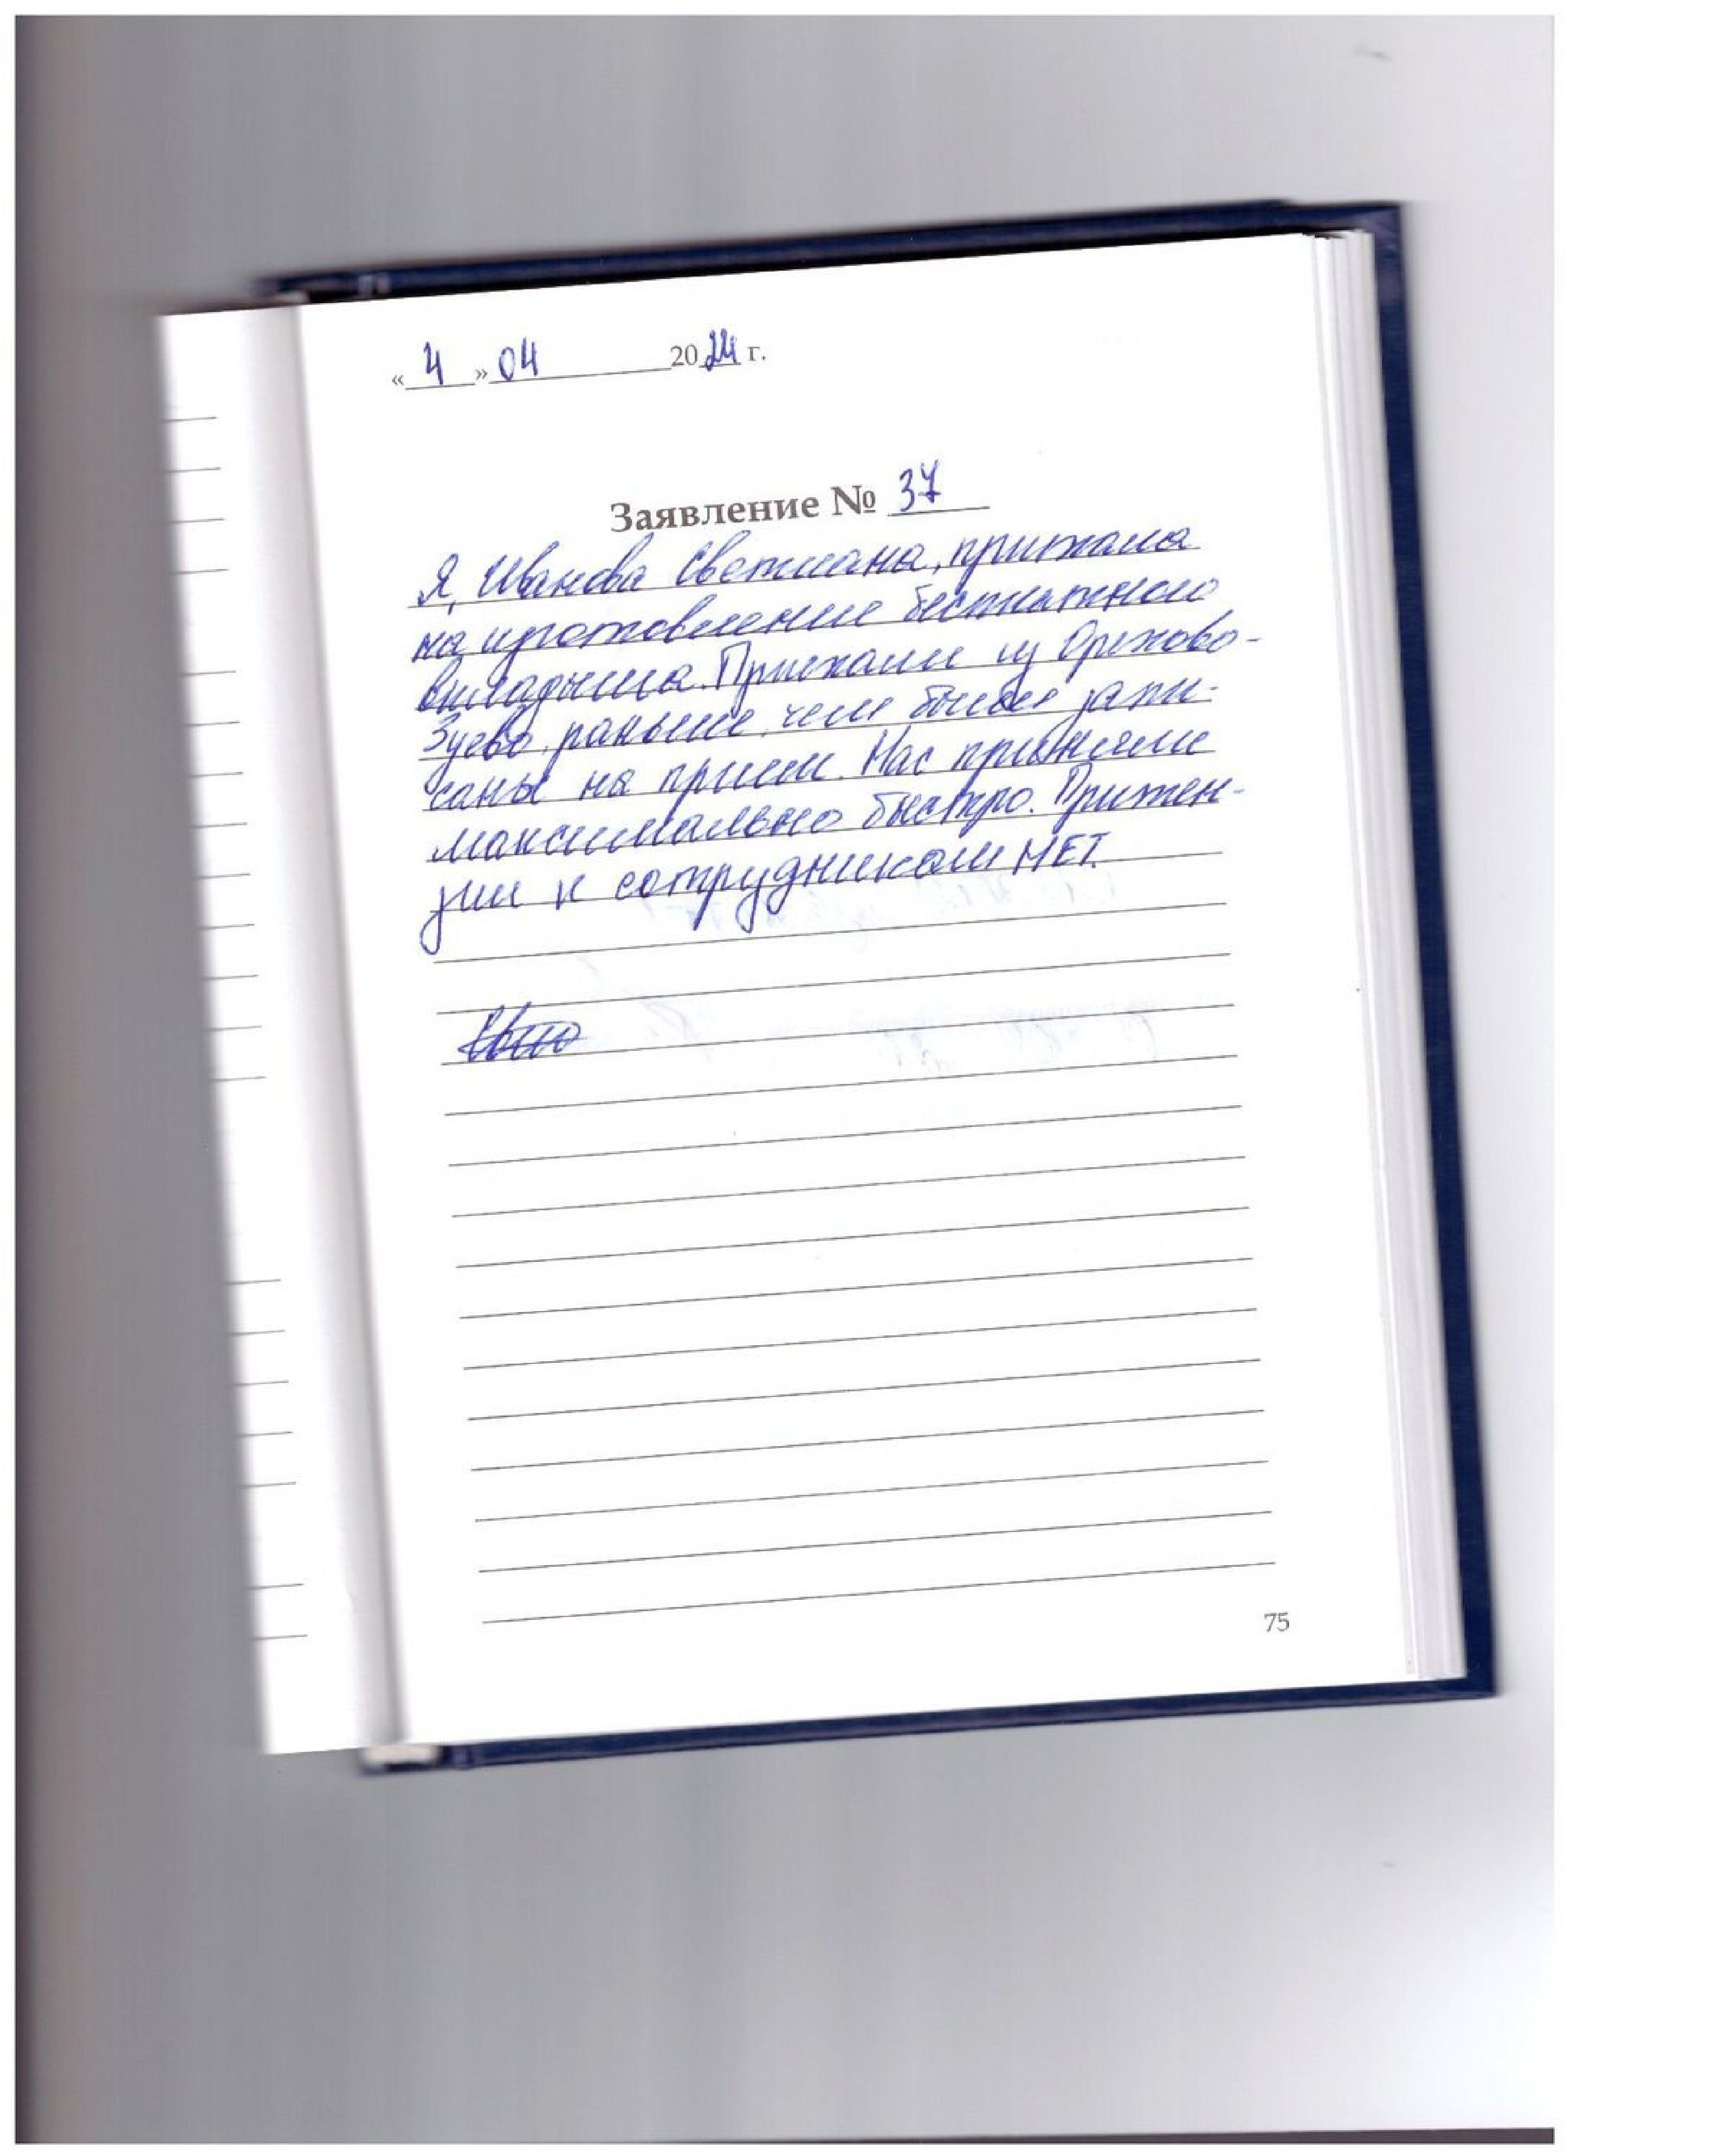 «4» 04 2024 г.
Заявление № 37
Я, Иванова Светлана, приехала
на изготовление бесплатного
вкладыша. Приехали из Орехово-
Зуево, раньше, чем были запи-
саны на прием. Нас приняли
максимально быстро. Притен-
зии к сотрудникам НЕТ.
75